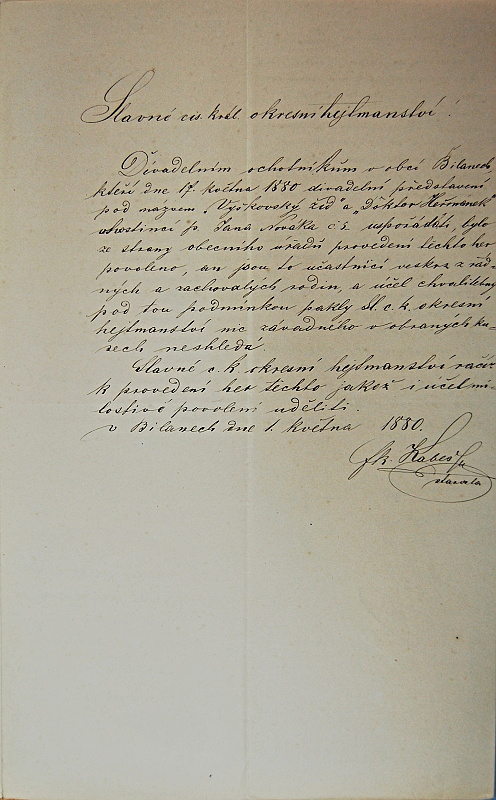 Slavné cis. král. okresní hejtmanství!
Divadelním ochotníkům v obci Bílanech,
kteří dne 17. května 1880 divadelní představení
pod názvem „Vyškovský žid" a „Doktor Heřmánek"
v hostinci p. Jana Nováka č 5 uspořádati, bylo
ze strany obecního úřadu provedení těchto her
povoleno, an jsou to účastníci veskrz z řád-
ných a zachovalých rodin, a účel chvalitebný
pod tou podmínkou pakly Sl. c. k. okresní
hejtmanství nic závadného v obraných ku-
sech neshledá.
Slavné c. k. okresní hejtmanství račiž
k provedení her těchto jakož i účel mi-
lostivé povolení uděliti.
v Bílanech dne 1. května 1880.
fr.
starosta